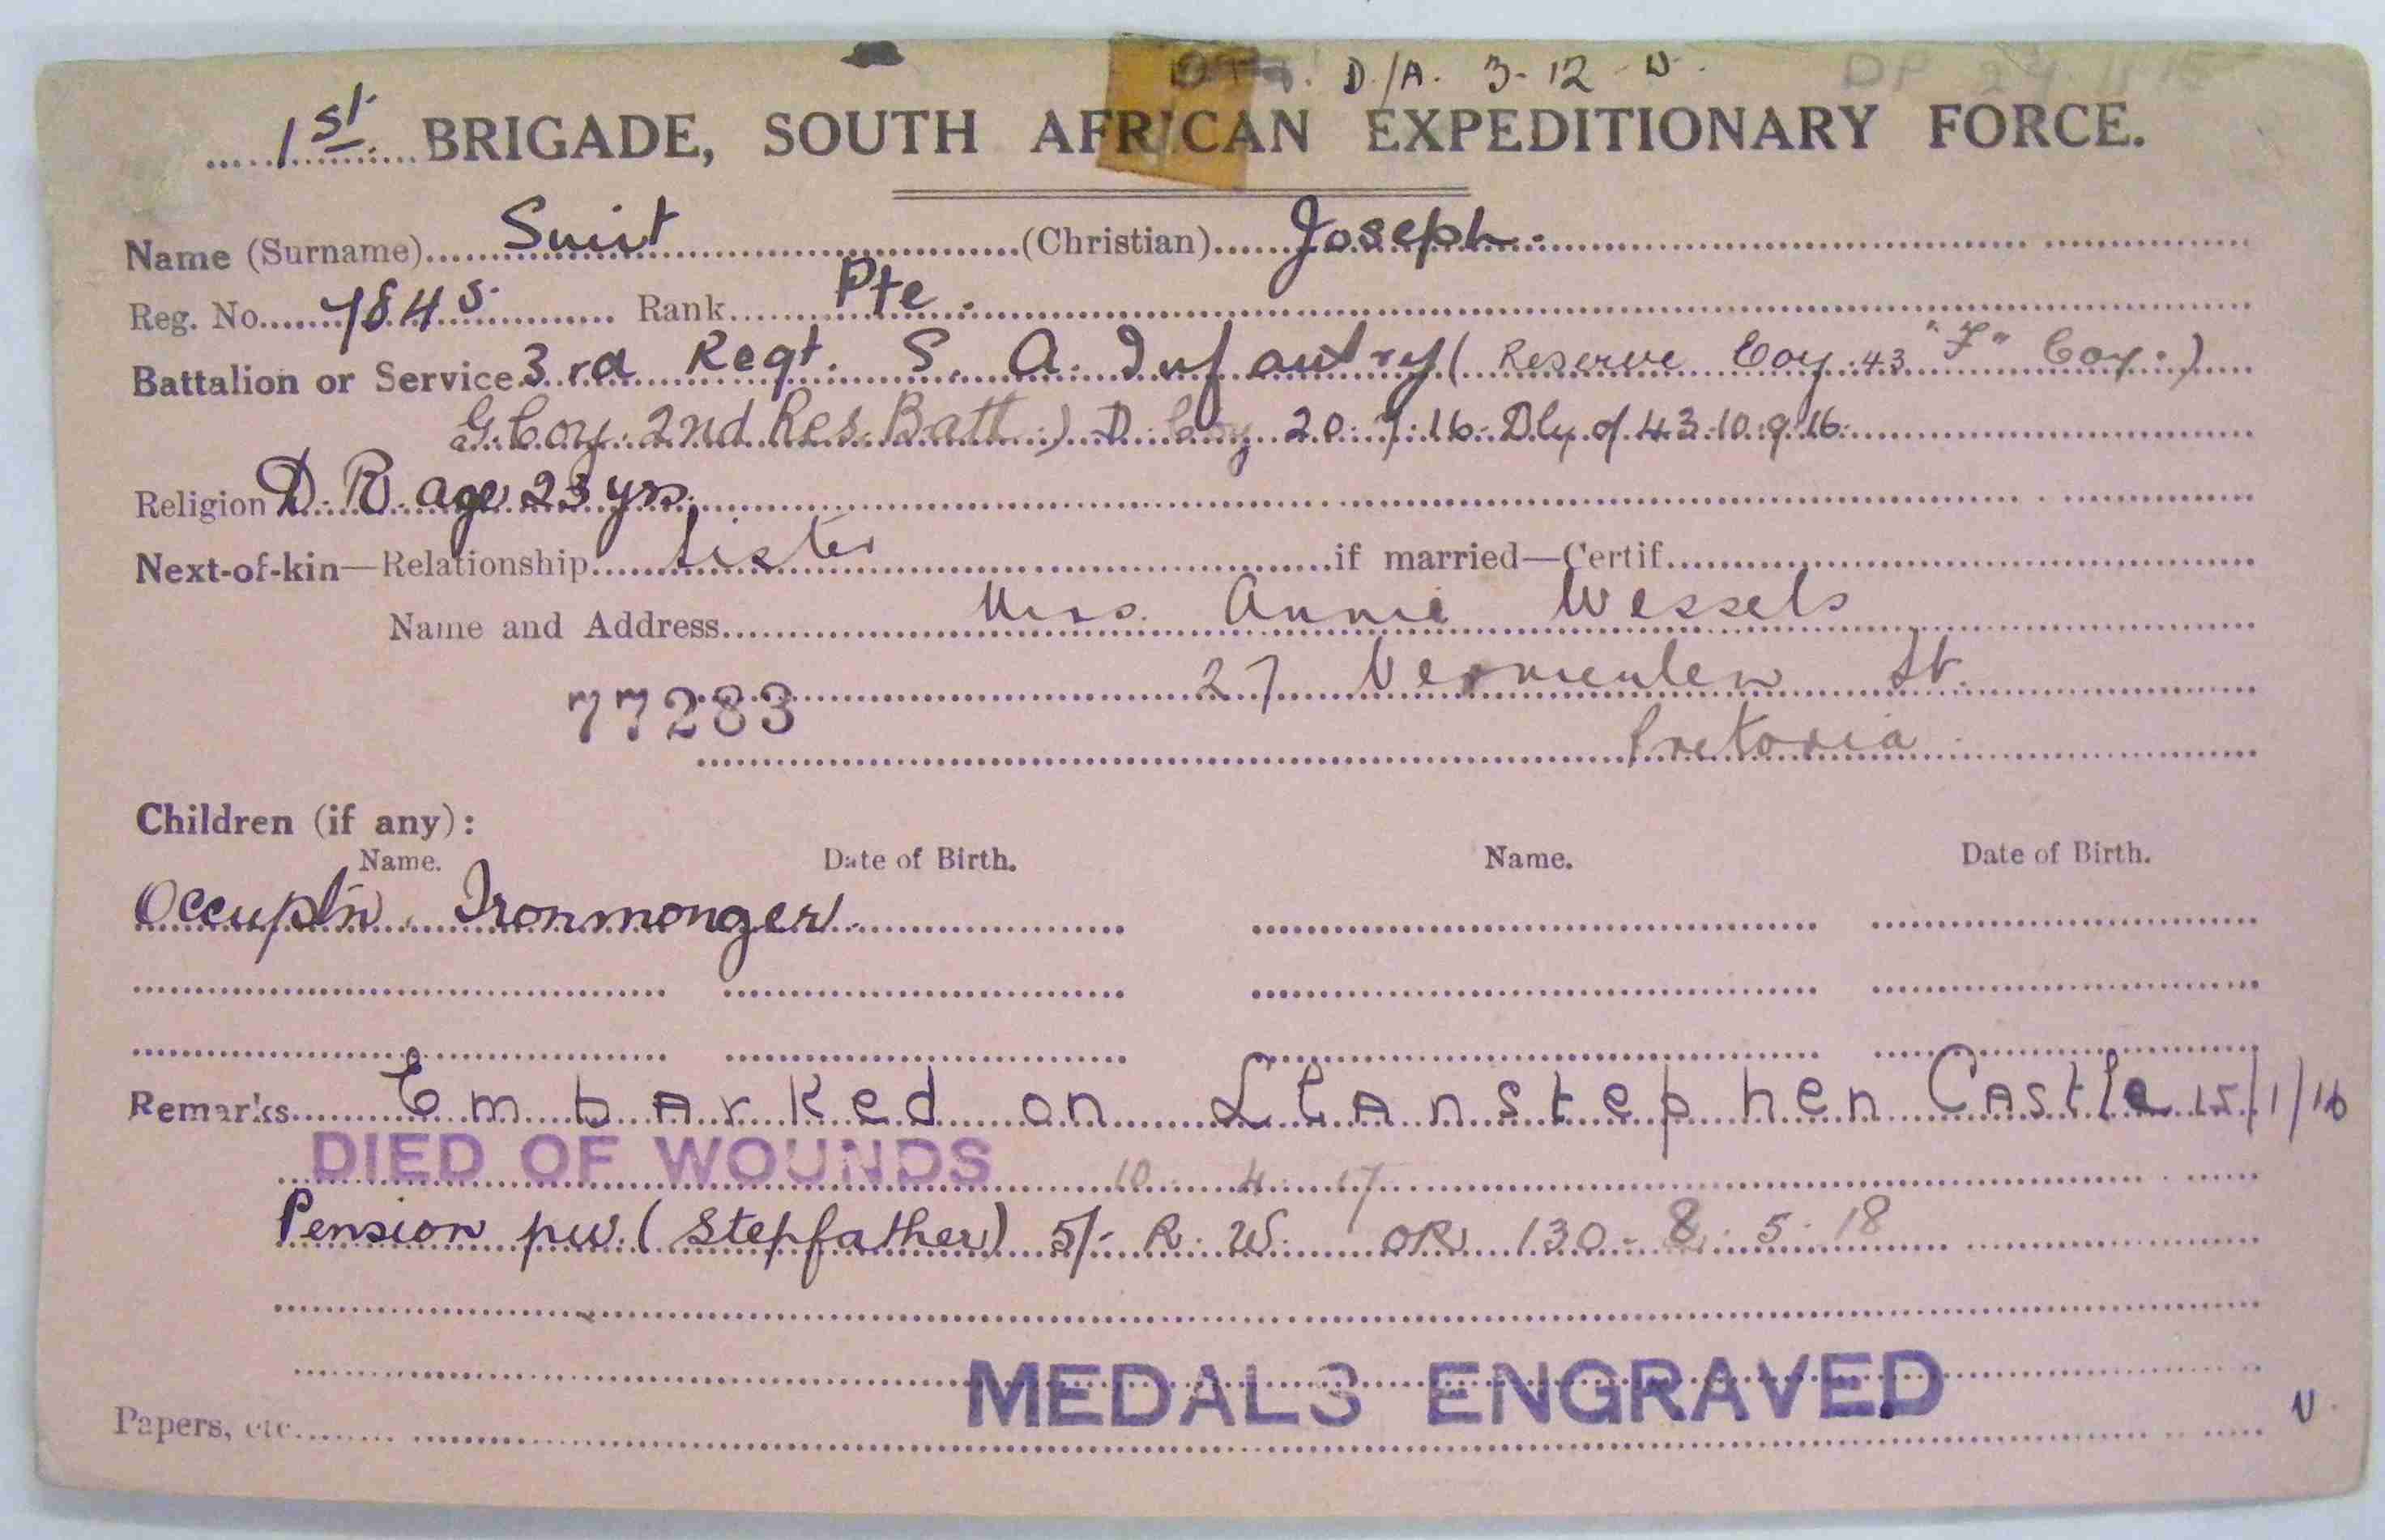 D/A. 3-12
1st BRIGADE, SOUTH AFRICAN EXPEDITIONARY FORCE.
Name (Surname) Smit (Christian) Joseph.
Reg. No. 7845 Rank Pte.
Battalion or Service 3rd Regt. S. A. Infantry ( Reserve Coy. 43 "F" Coy. )
G. Coy. 2nd Res. Batt. ) D. Coy 20. 7. 16. Dly of 43. 10. 9. 16.
Religion D. R. age 23 yrs.
Next-of-kin—Relationship Sister if married—Certif.
Name and Address Mrs. Annie Wessels
27 Vermeulen St.
77283
Pretoria
Children (if any):
Name. Date of Birth. Name. Date of Birth.
Occupt'n. Ironmonger.
Remarks Embarked on Llanstephen Castle 15/1/16
DIED OF WOUNDS 10 4 17
Pension pw. ( Stepfather ) 5/- R. W. OR 130 - 8. 5. 18
MEDALS ENGRAVED
Papers, etc.